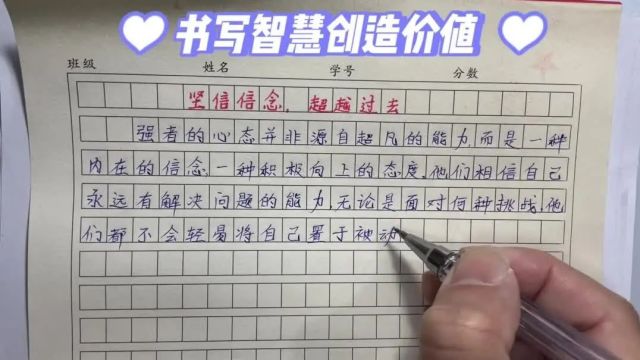 书写智慧创造价值
班级 姓名 学号 分数
坚信信念，超越过去
强者的心态并非源自超凡的能力,而是一种
内在的信念,一种积极向上的态度,他们相信自己
永远有解决问题的能力,无论是面对何种挑战,他
们都不会轻易将自己置于被动